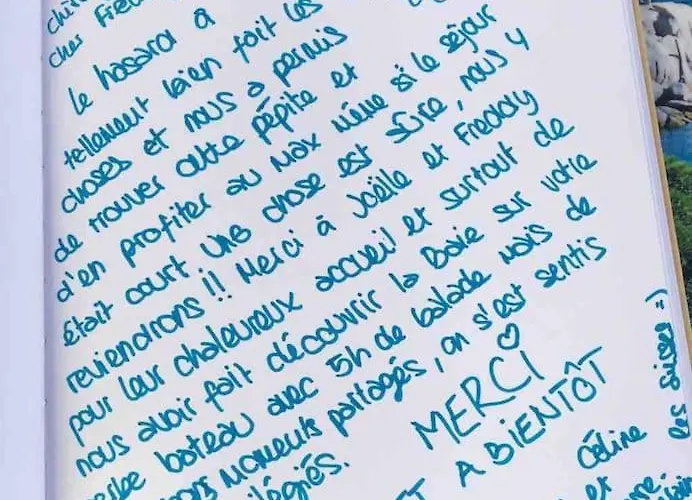 cher Fred
Le hasard a
tellement bien fait les
choses et nous a permis
de trouver cette pépite et
d'en profiter au max même si le séjour
était court. Une chose est sûre, nous y
reviendrons !! Merci à Joëlle et Freddy
pour leur chaleureux accueil et surtout de
nous avoir fait découvrir la Baie sur votre
bateau avec 5h de balade mais de
moments partagés, on s'est sentis
MERCI ♡
A BIENTÔT
Céline
et
les suisses =)